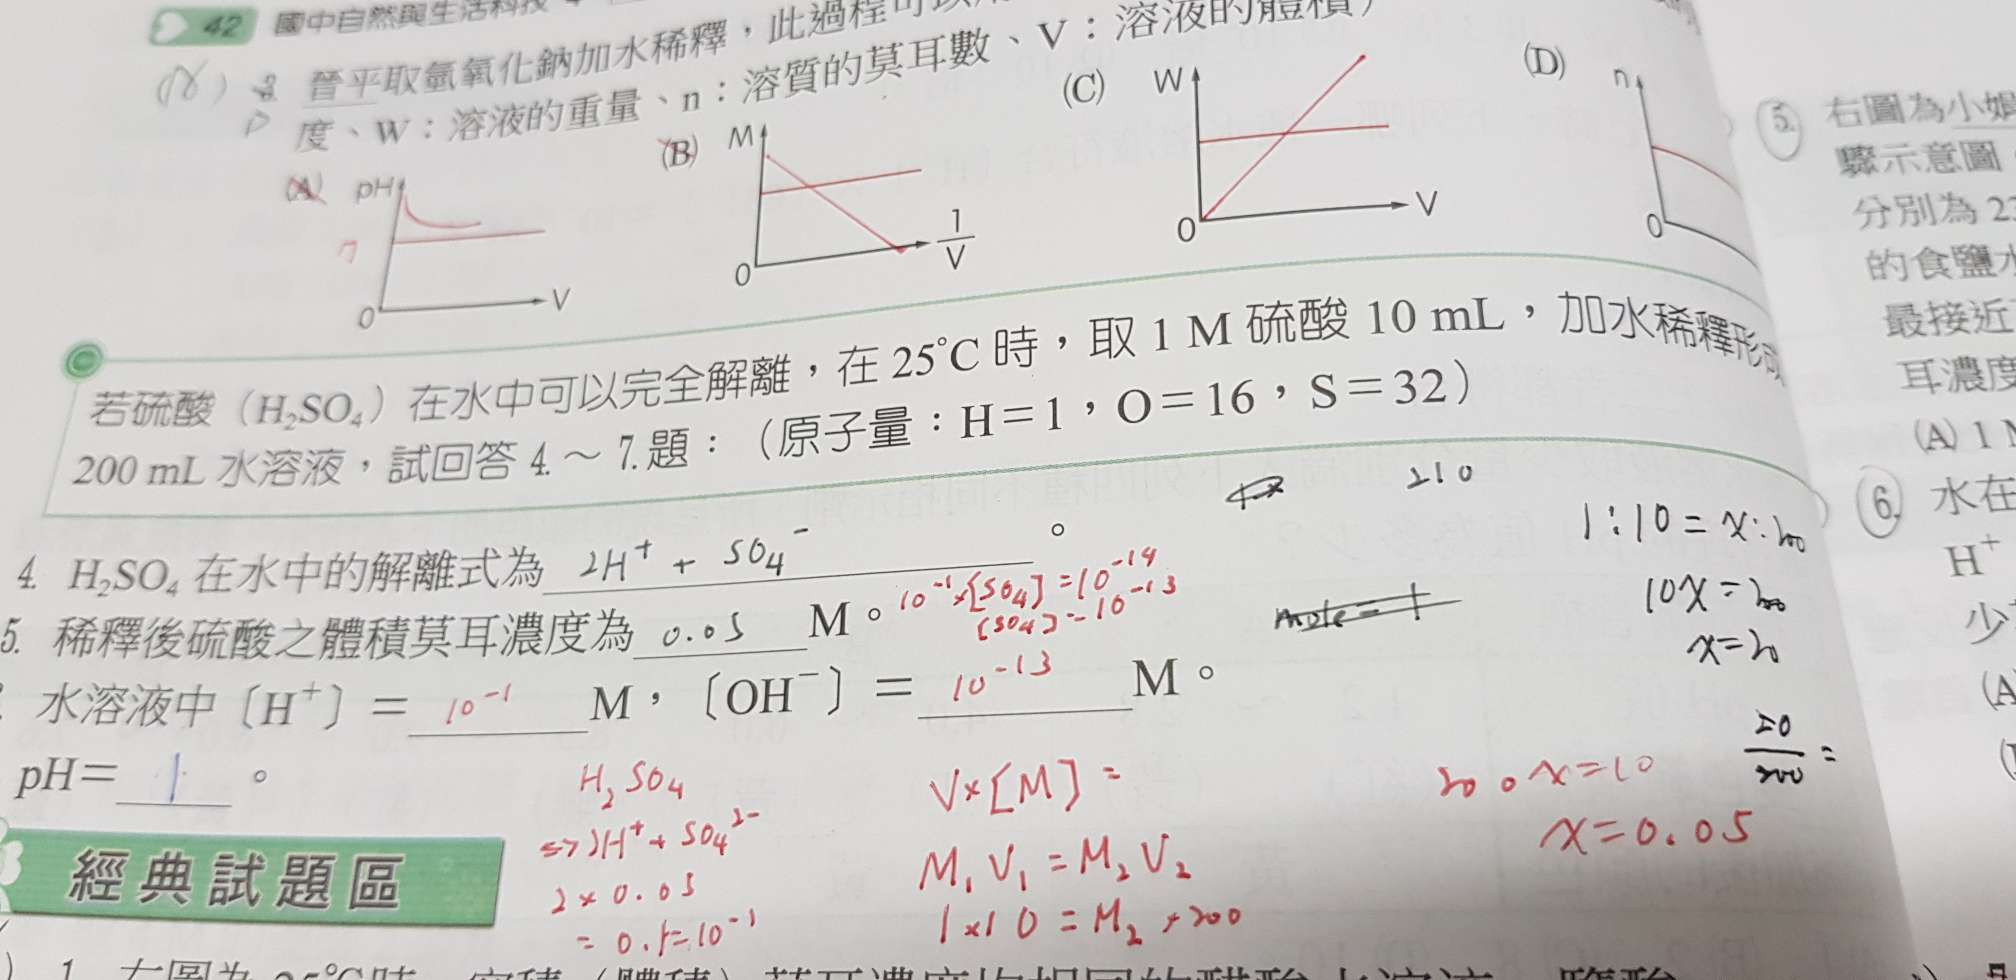 42 國中自然與生活科技
晉平取氫氧化鈉加水稀釋，此過程可以
度、W：溶液的重量、n：溶質的莫耳數、V：溶液的體積）
(A) pH 0 V
(B) M 0 1/V
(C) W 0 V
(D) n 0
若硫酸（H₂SO₄）在水中可以完全解離，在 25℃ 時，取 1 M 硫酸 10 mL，加水稀釋形成
200 mL 水溶液，試回答 4. ～ 7. 題：（原子量：H＝1，O＝16，S＝32）
210
1:10=x:200
10x=200
x=20
20/200 =
4. H₂SO₄ 在水中的解離式為 2H⁺ + SO₄⁻ 。
10⁻¹×[SO₄]=10⁻¹⁴
[SO₄]=10⁻¹³
mole=1
5. 稀釋後硫酸之體積莫耳濃度為 0.05 M。
水溶液中〔H⁺〕＝ 10⁻¹ M，〔OH⁻〕＝ 10⁻¹³ M。
pH＝ 1 。
H₂SO₄
=>2H⁺+SO₄²⁻
2×0.05
=0.1=10⁻¹
V×[M]=
M₁V₁=M₂V₂
1×10=M₂×200
200x=10
x=0.05
經典試題區
5. 右圖為小娟
驟示意圖
分別為 23
的食鹽水
最接近
耳濃度
(A) 1 M
6. 水在
H⁺
少
(A